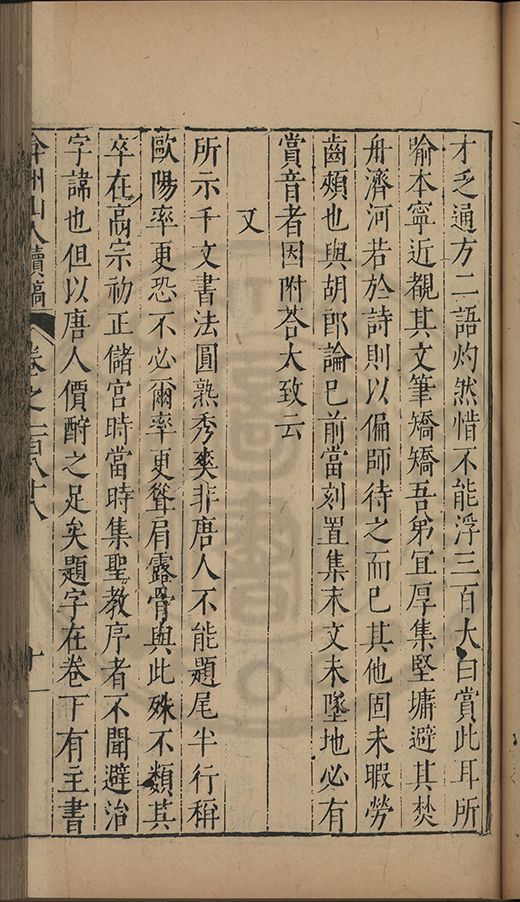 才乏通方二語灼然惜不能浮三百大白賞此耳所
喻本寧近覩其文筆矯矯吾弟宜厚集堅墉避其焚
舟濟河若於詩則以偏師待之而已其他固未暇勞
齒頰也與胡郎論已前當刻置集末文未墜地必有
賞音者因附荅大致云
又
所示千文書法圓熟秀爽非唐人不能題尾半行稱
歐陽率更恐不必爾率更聳肩露骨與此殊不類其
卒在高宗初正儲宮時當時集聖教序者不聞避治
字諱也但以唐人價酧之足矣題字在卷下有主書
弇州山人續稿 卷之一百八十八 十一